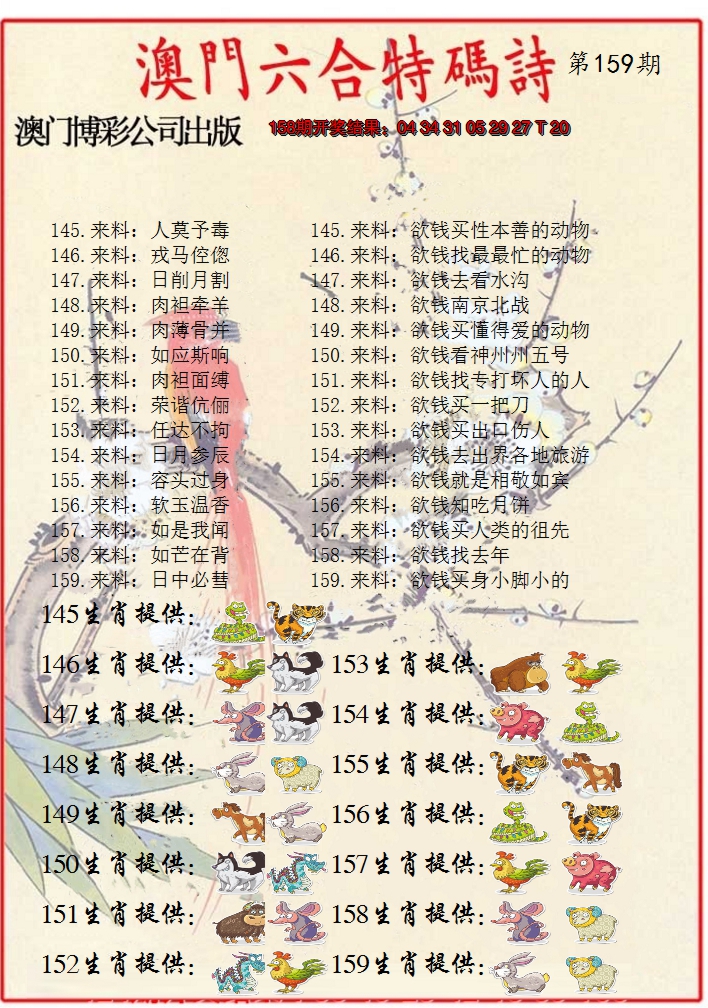 澳門六合特碼詩 第159期
澳门博彩公司出版 158期开奖结果：04 34 31 05 29 27 T 20
145.来料：人莫予毒 145.来料：欲钱买性本善的动物
146.来料：戎马倥偬 146.来料：欲钱找最最忙的动物
147.来料：日削月割 147.来料：欲钱去看水沟
148.来料：肉袒牵羊 148.来料：欲钱南京北战
149.来料：肉薄骨并 149.来料：欲钱买懂得爱的动物
150.来料：如应斯响 150.来料：欲钱看神州州五号
151.来料：肉袒面缚 151.来料：欲钱找专打坏人的人
152.来料：荣谐伉俪 152.来料：欲钱买一把刀
153.来料：任达不拘 153.来料：欲钱买出口伤人
154.来料：日月参辰 154.来料：欲钱去出界各地旅游
155.来料：容头过身 155.来料：欲钱就是相敬如宾
156.来料：软玉温香 156.来料：欲钱知吃月饼
157.来料：如是我闻 157.来料：欲钱买人类的徂先
158.来料：如芒在背 158.来料：欲钱找去年
159.来料：日中必彗 159.来料：欲钱买身小脚小的
145生肖提供：
146生肖提供： 153生肖提供：
147生肖提供： 154生肖提供：
148生肖提供： 155生肖提供：
149生肖提供： 156生肖提供：
150生肖提供： 157生肖提供：
151生肖提供： 158生肖提供：
152生肖提供： 159生肖提供：